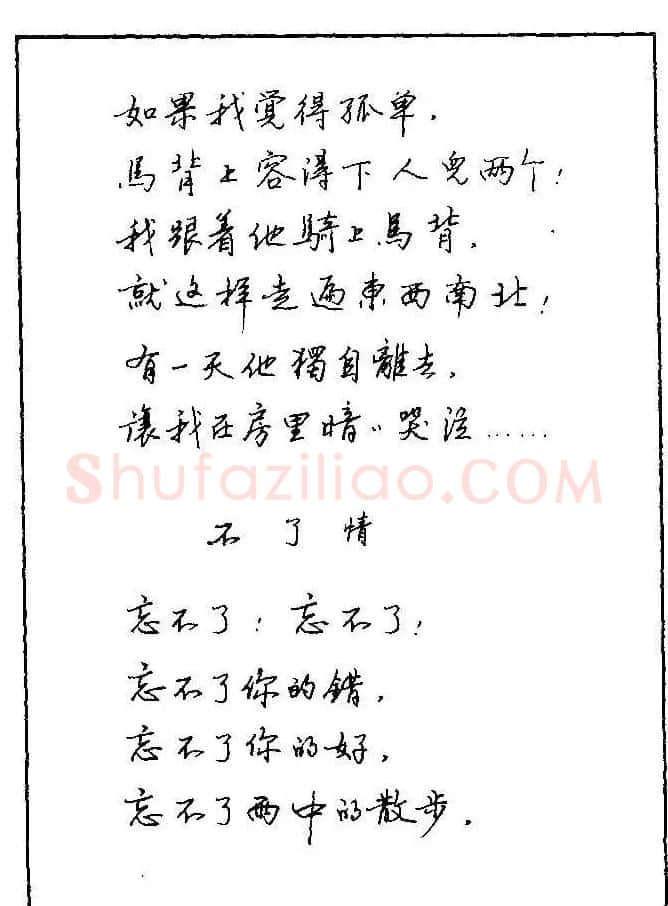 如果我覺得孤单，
馬背上容得下人兒两个！
我跟着他騎上馬背，
就这样走遍東西南北！
有一天他獨自離去，
讓我在房里暗〃哭泣……
Shufaziliao.COM
不了情
忘不了！忘不了！
忘不了你的錯，
忘不了你的好，
忘不了雨中的散步，